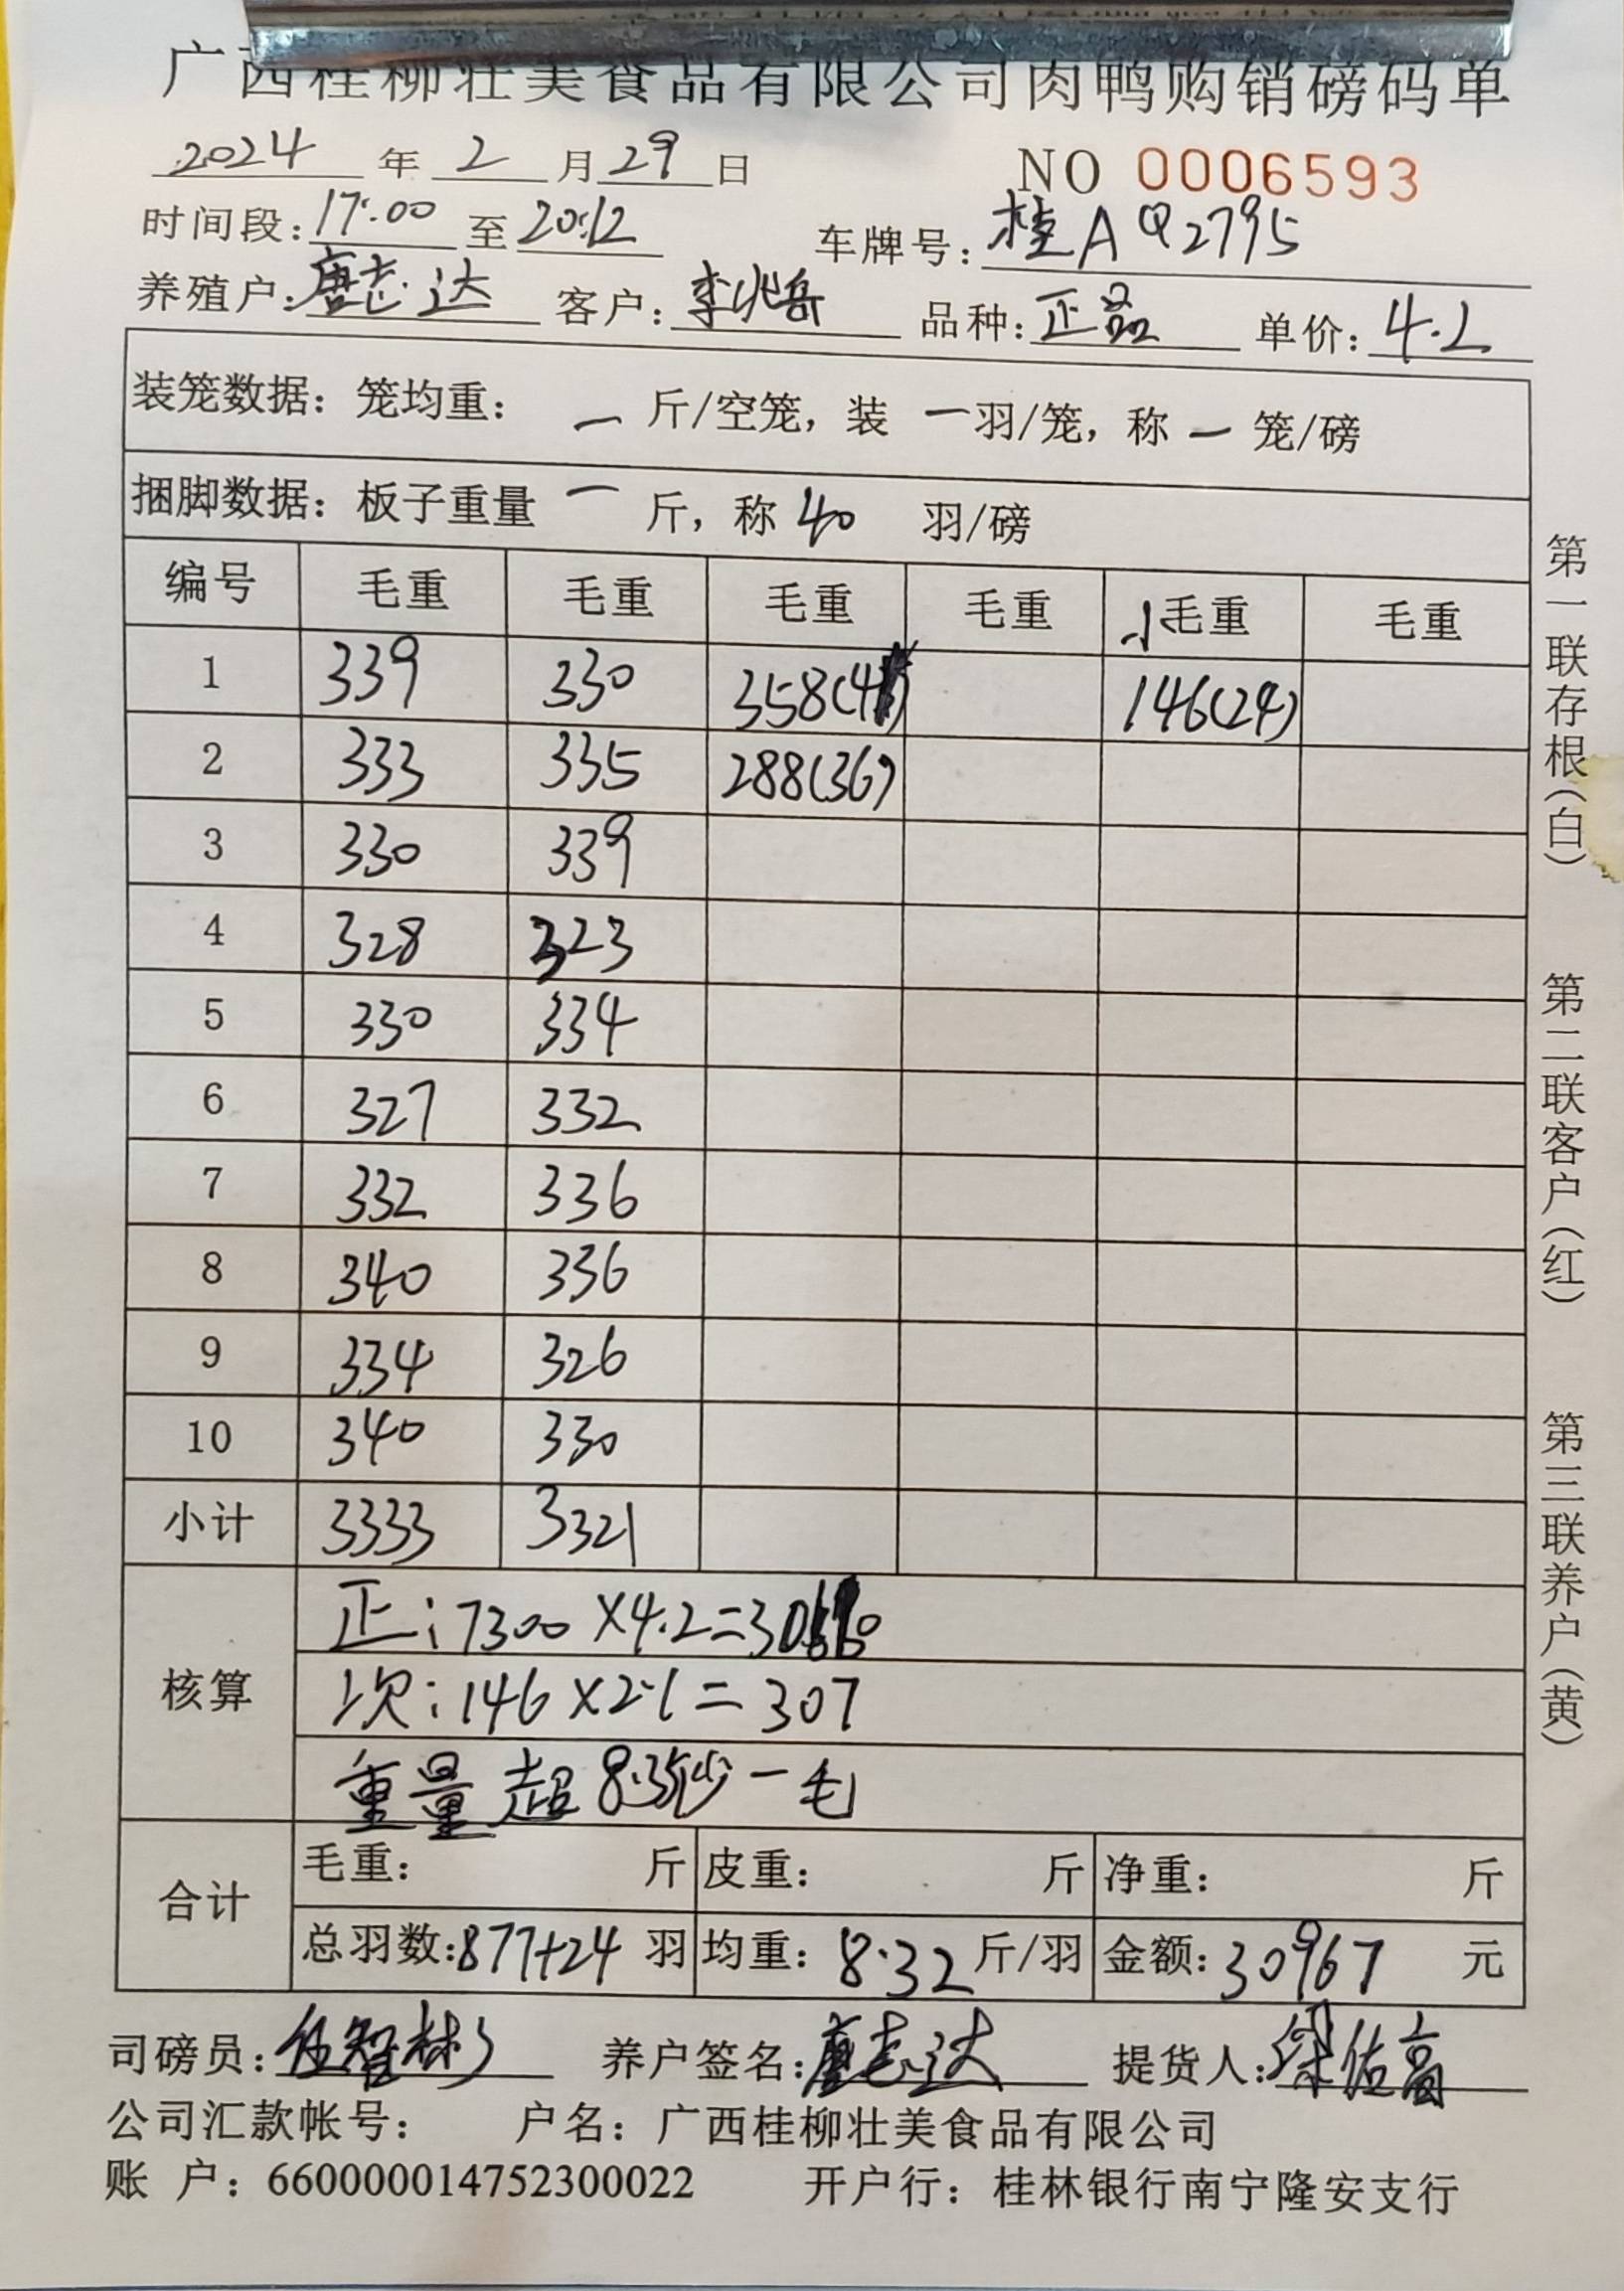 广西桂柳壮美食品有限公司肉鸭购销磅码单
2024 年 2 月 29 日 NO 0006593
时间段: 17:00 至 20:12 车牌号: 桂A Q2795
养殖户: 唐志达 客户: 李兆岳 品种: 正品 单价: 4.2
装笼数据: 笼均重: 一 斤/空笼, 装 一 羽/笼, 称 一 笼/磅
捆脚数据: 板子重量 一 斤, 称 40 羽/磅
编号 毛重 毛重 毛重 毛重 小毛重 毛重
1 339 330 358(4 ) 146(24)
2 333 335 288(36)
3 330 339
4 328 323
5 330 334
6 327 332
7 332 336
8 340 336
9 334 326
10 340 330
小计 3333 3321
核算 正: 7300 ×4.2=30 0
次: 146 ×2.1= 307
重量超8.3 少一毛
合计 毛重: 斤 皮重: 斤 净重: 斤
总羽数: 877+24 羽 均重: 8.32 斤/羽 金额: 30967 元
司磅员: 伍智彬 养户签名: 唐志达 提货人: 佑高
公司汇款帐号: 户名: 广西桂柳壮美食品有限公司
账 户: 660000014752300022 开户行: 桂林银行南宁隆安支行
第一联存根(白) 第二联客户(红) 第三联养户(黄)